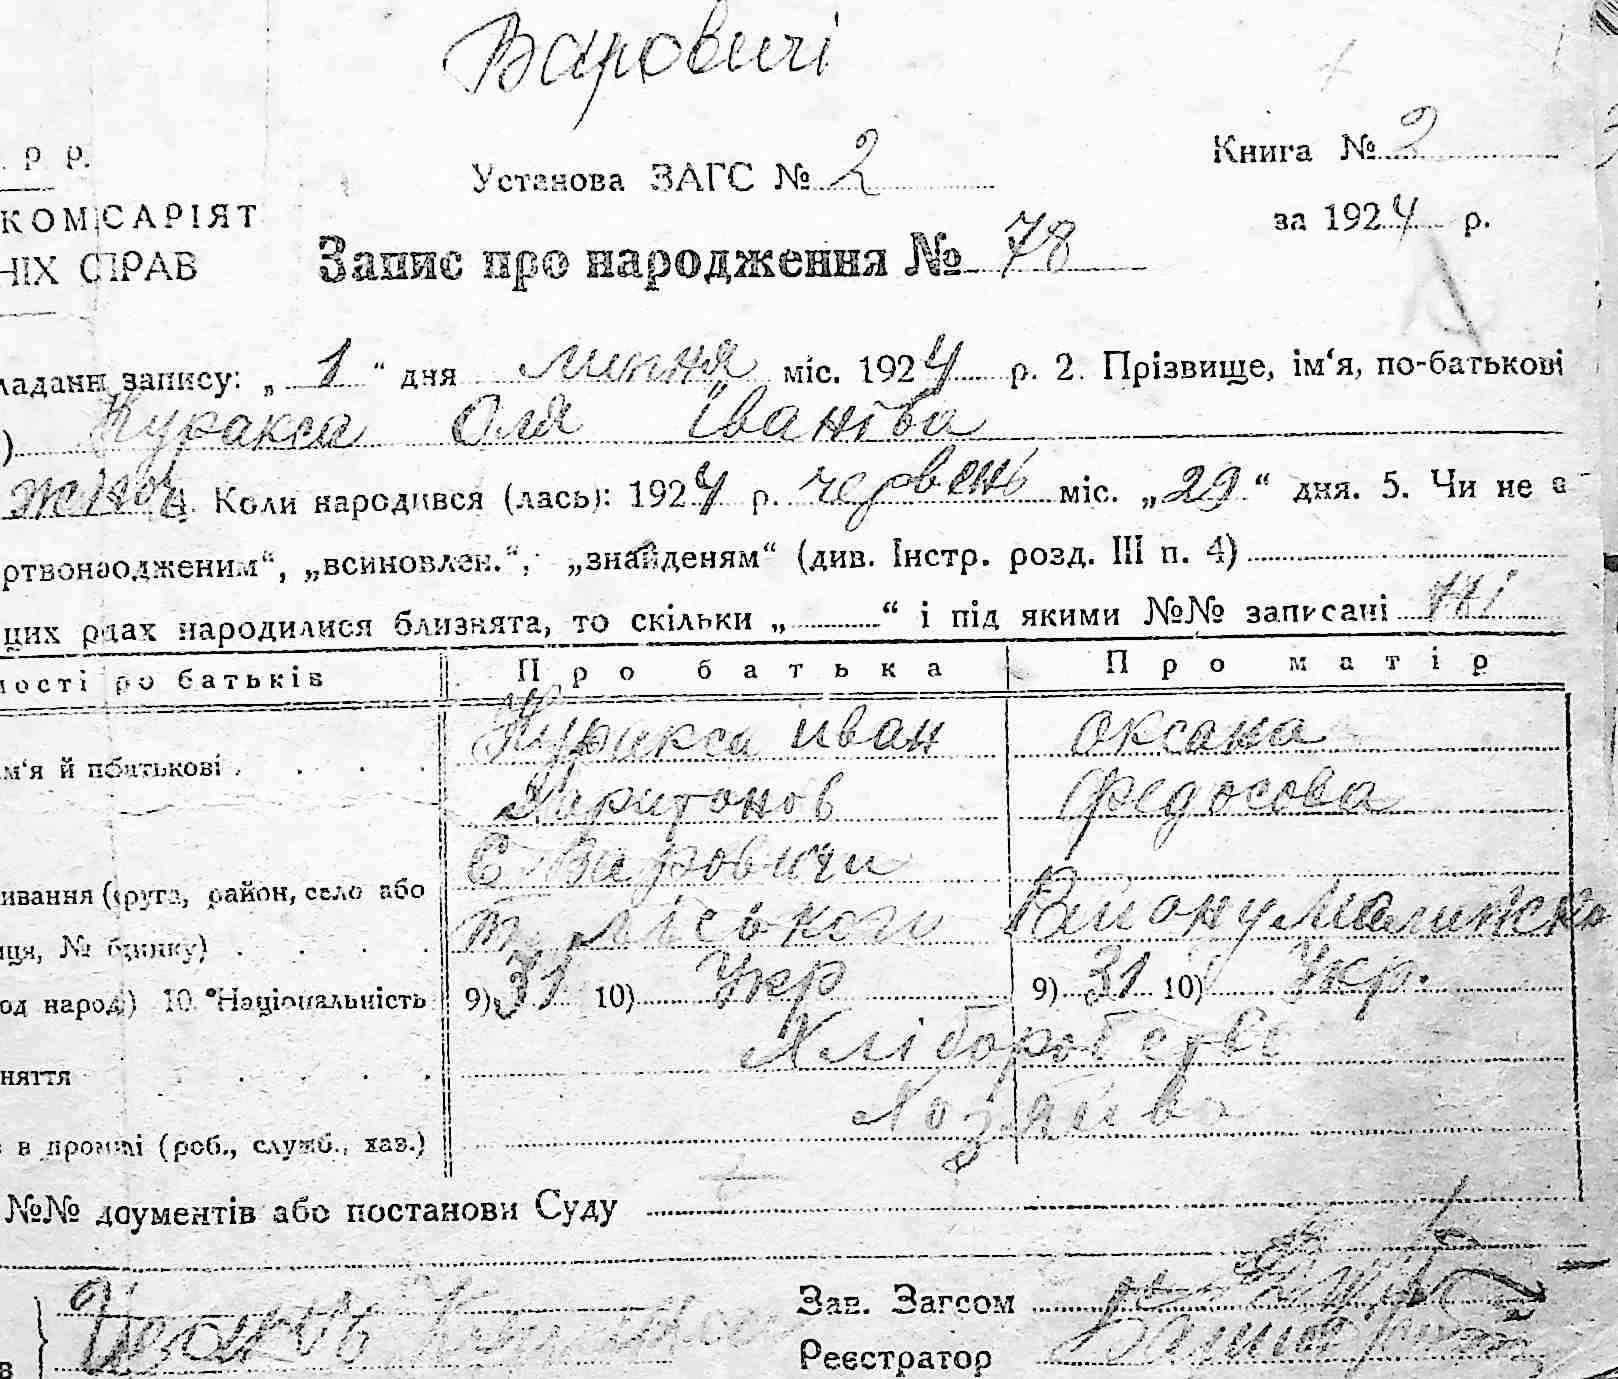 Варовичі
. Р Р.
Установа ЗАГС № 2
Книга № 2
КОМІСАРІЯТ
за 1924 р.
НІХ СПРАВ
Запис про народження № 78
ладанн запису: „ 1 “ дня липня міс. 1924 р. 2. Прізвище, ім‘я, по-батькові
) Куракса Оля Іванова
жіноч. Коли народився (лась): 1924 р. червень міс. „29“ дня. 5. Чи не є
ртвонаодженим“, „всиновлен.“, „знайденям“ (див. Інстр. розд. III п. 4)
цих рдах народилися близнята, то скільки „ “ і під якими №№ записані ні
мості ро батьків Про батька Про матір
Куракса иван оксана
м‘я й пбатькові .
Харитонов Федосова
С Варовичи
ивання (круга, район, село або
ліського Району Малинско
иця, № бдинку) .
од народ.) 10. Національність 9) 31 10) Укр 9) 31 10) Укр.
Хліборобство
няття
Хозяйва
в дромлі (роб., служб., хаз.)
№№ доументів або постанови Суду
Зав. Загсом
Реєстратор